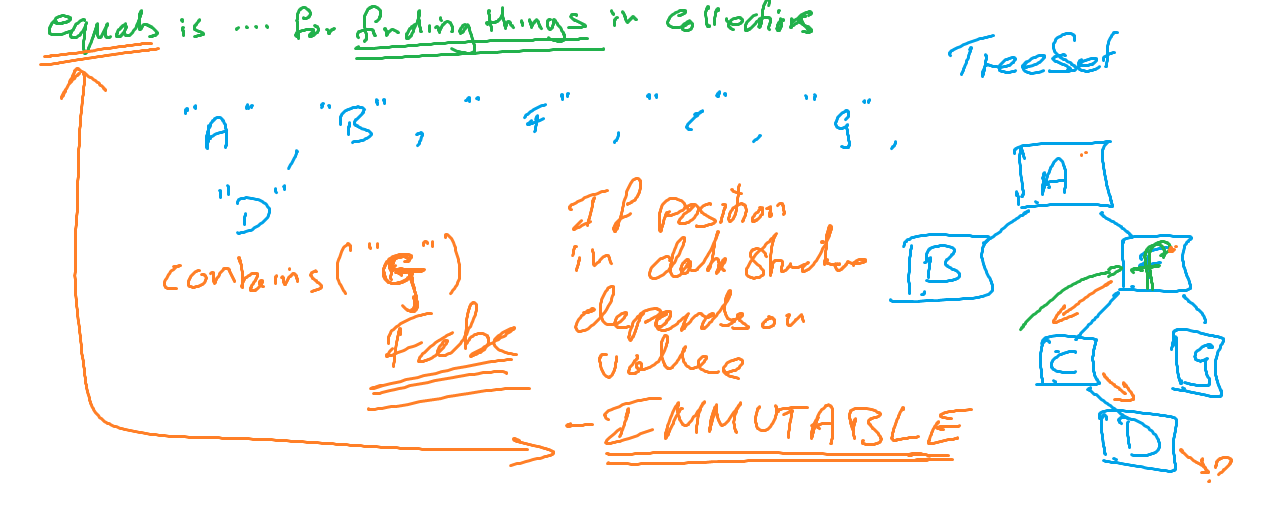 equals is .... for finding things in collections
TreeSet
"A", "B", "F", "C", "G",
"D"
contains("G")
False
If position
in data structure
depends on
value
- IMMUTABLE
A
B
F
C
G
D
?